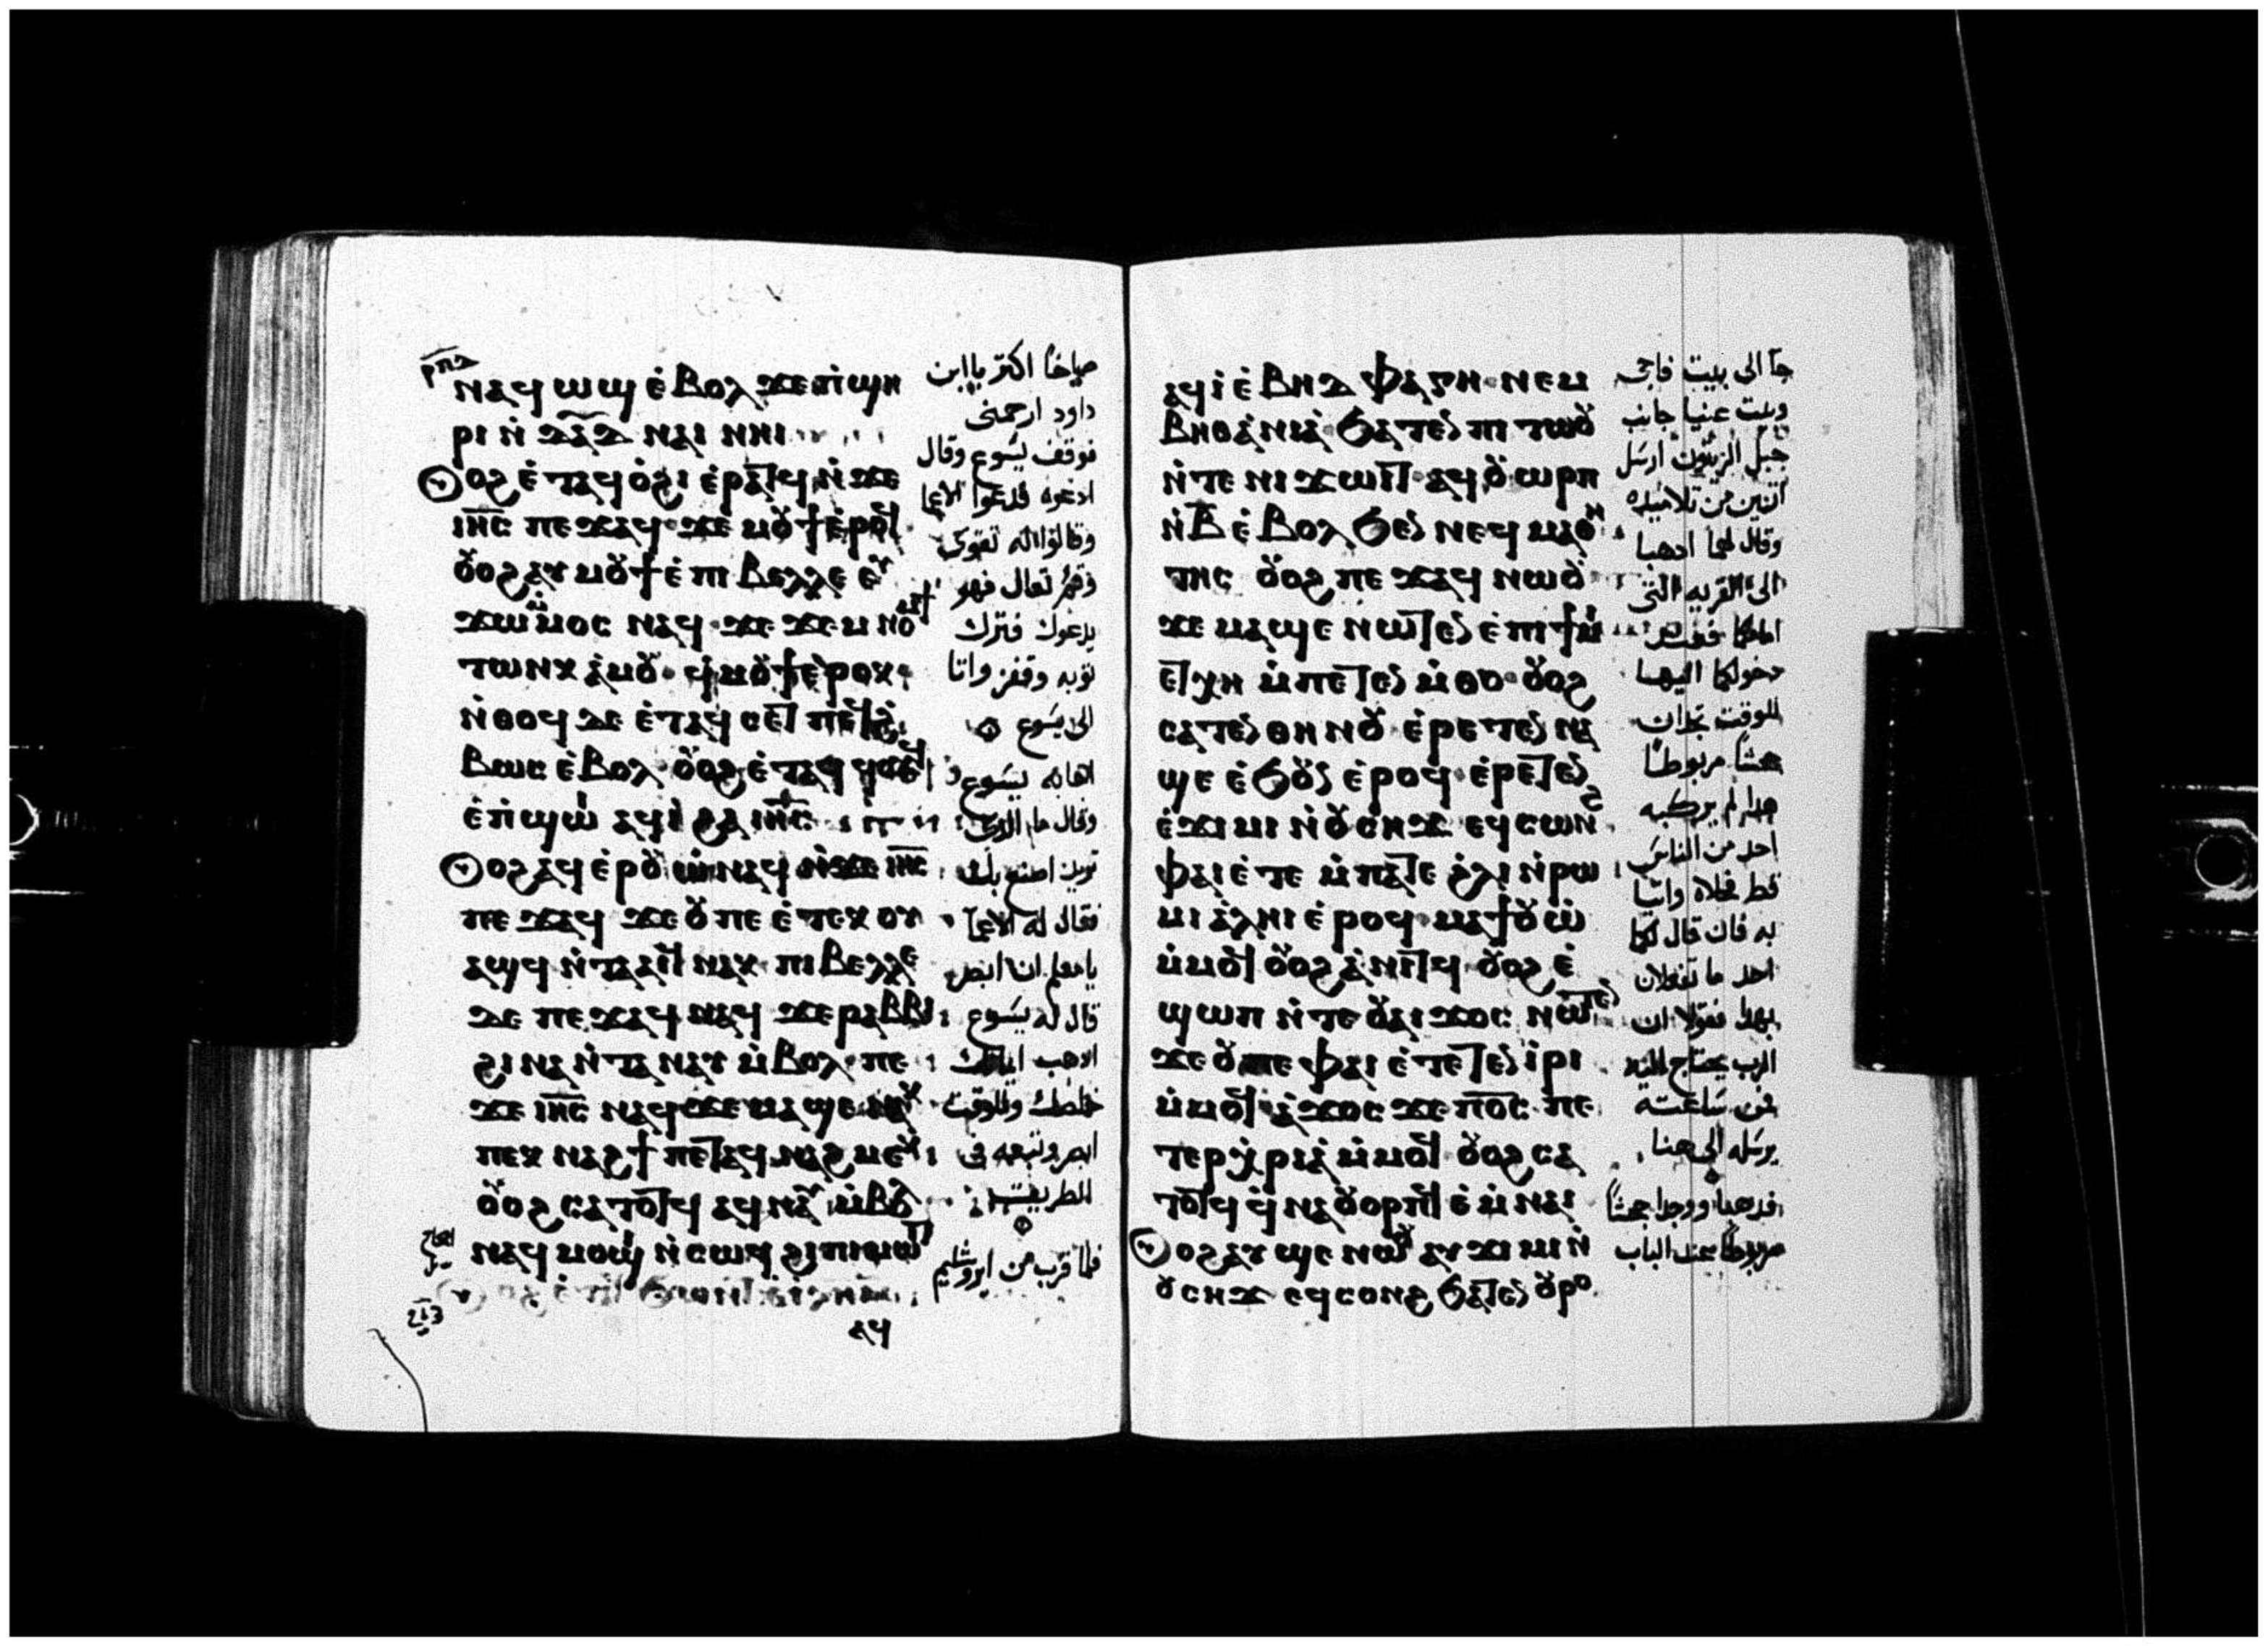 ⲛⲁϥ ⲱϣ ⲉ̀ⲃⲟⲗ ϫⲉ ⲡ̀ϣⲏ
ⲣⲓ ⲛ̀ ⲇⲁⲇ ⲛⲁⲓ ⲛⲏⲓ
ⲟϩ ⲉ̀ⲧⲁϥ ⲟ̀ϩⲓ ⲉ̀ⲣⲁⲧϥ ⲛ̀ϫⲉ
ⲓⲏ̅ⲥ̅ ⲡⲉϫⲁϥ ϫⲉ ⲙⲟⲩϯ ⲉ̀ⲣⲟϥ
ⲟⲩⲟϩ ⲁⲩ ⲙⲟⲩϯ ⲉ̀ ⲡⲓ ⲃⲉⲗⲗⲉ ⲉⲩ
ϫⲱ ⲙ̀ⲙⲟⲥ ⲛⲁϥ ϫⲉ ϫⲉⲙ ⲛⲟⲙϯ
ⲧⲱⲛⲕ ⲁ̀ⲙⲟⲩ ϥ̀ⲙⲟⲩϯ ⲉ̀ⲣⲟⲕ
ⲛ̀ⲑⲟϥ ⲇⲉ ⲉ̀ⲧⲁϥ
ⲃⲱⲥ ⲉ̀ⲃⲟⲗ ⲟⲩⲟϩ ⲉ̀ⲧⲁϥ
ⲉ̀ⲡ̀ϣⲱⲓ ⲁϥⲓ̀ ϩⲁ ⲓⲏ̅ⲥ̅
ⲟϩ ⲁϥ ⲉⲣⲟⲩⲱ̀ ⲛⲁϥ ⲛ̀ϫⲉ ⲓⲏ̅ⲥ̅
ⲡⲉϫⲁϥ ϫⲉ ⲟⲩ ⲡⲉ ⲉ̀ⲧⲉⲕ ⲟⲩ
ⲁϣϥ ⲛ̀ⲧⲁⲁⲓϥ ⲛⲁⲕ ⲡⲓ ⲃⲉⲗⲗⲉ
ⲇⲉ ⲡⲉϫⲁϥ ⲛⲁϥ ϫⲉ ⲣⲁⲃⲃⲓ
ϩⲓⲛⲁ ⲛ̀ⲧⲁ ⲛⲁⲩ ⲙ̀ⲃⲟⲗ ⲡⲉ
ϫⲉ ⲓⲏ̅ⲥ̅ ⲛⲁϥ ϫⲉ ⲙⲁϣⲉ ⲛⲁⲕ
ⲡⲉⲕ ⲛⲁϩϯ ⲡⲉⲧⲁϥ ⲛⲁϩⲙⲉⲕ
ⲟⲩⲟϩ ⲥⲁⲧⲟⲧϥ ⲁϥ ⲛⲁⲩ ⲙ̀ⲃⲟⲗ
ⲛⲁϥ ⲙⲟϣⲓ ⲛ̀ⲥⲱϥ ϩⲓ ⲡⲓ ⲙⲱⲓⲧ
ⲁϥ
صياحًا اكتر يا ابن
داود ارحمنى
فوقف يسوع وقال
ادعوه فدعوا الاعما
وقالوا له تقوى
وقم تعال فهو
يدعوك فترك
توبه وقفز واتا
الى يسوع
اجابه يسوع
وقال ما الدى
تريد اصنع بك
فقال له الاعما
يا معلم ان ابصر
قال له يسوع
ادهب ايمانك
خلصك وللوقت
ابصر وتبعه فى
الطريق
فلما قرب من ايروشليم
ⲁϥⲓ̀ ⲉ̀ ⲃⲏⲇ ⲫⲁⲅⲏ ⲛⲉⲙ
ⲃⲏⲑⲁ̀ⲛⲓⲁ̀ ϧⲁⲧⲉⲛ ⲡⲓ ⲧⲱⲟⲩ
ⲛ̀ⲧⲉ ⲛⲓ ϫⲱⲓⲧ ⲁϥ ⲟⲩⲱⲣⲡ
ⲛ̀ ⲃ̅ ⲉ̀ⲃⲟⲗ ϧⲉⲛ ⲛⲉϥ ⲙⲁⲑⲏ
ⲧⲏⲥ ⲟⲩⲟϩ ⲡⲉϫⲁϥ ⲛⲱⲟⲩ
ϫⲉ ⲙⲁϣⲉ ⲛⲱⲧⲉⲛ ⲉ̀ ⲡⲓ ϯⲙⲓ
ⲉⲧⲭⲏ ⲙ̀ⲡⲉⲧⲉⲛ ⲙ̀ⲑⲟ ⲟⲩⲟϩ
ⲥⲁⲧⲉⲛ ⲑⲏⲛⲟⲩ ⲉ̀ⲣⲉⲧⲉⲛ ⲛⲁ
ϣⲉ ⲉ̀ϧⲟⲩⲛ ⲉ̀ⲣⲟϥ ⲉ̀ⲣⲉⲧⲉⲛ
ⲉ̀ϫⲓⲙⲓ ⲛ̀ⲟⲩ ⲥⲏϫ ⲉϥⲥⲱⲛϩ
ⲫⲁⲓ ⲉ̀ⲧⲉ ⲙ̀ⲡⲁⲧⲉ ϩ̀ⲗⲓ ⲛ̀ⲣⲱ
ⲙⲓ ⲁ̀ⲗⲏⲓ ⲉ̀ⲣⲟϥ ⲙⲁϯⲟⲩⲱ̀
ⲙ̀ⲙⲟϥ ⲟⲩⲟϩ ⲁ̀ⲛⲓⲧϥ ⲟⲩⲟϩ ⲉ̀
ϣⲱⲡ ⲛ̀ⲧⲉ ⲟⲩⲁⲓ ϫⲟⲥ ⲛⲱⲧⲉⲛ
ϫⲉ ⲟⲩ ⲡⲉ ⲫⲁⲓ ⲉ̀ⲧⲉⲧⲉⲛ ⲓ̀ⲣⲓ
ⲙ̀ⲙⲟϥ ⲁ̀ϫⲟⲥ ϫⲉ ⲡ̅ⲟ̅ⲥ̅ ⲡⲉ
ⲧⲉⲣⲭ̀ⲣⲓⲁ̀ ⲙ̀ⲙⲟϥ ⲟⲩⲟϩ ⲥⲁ
ⲧⲟⲧϥ ϥ̀ⲛⲁ ⲟⲩⲟⲣⲡϥ ⲉ̀ ⲙ̀ⲛⲁⲓ
ⲟϩ ⲁⲩ ϣⲉ ⲛⲱⲟⲩ ⲁⲩ ϫⲓⲙⲓ ⲛ̀
ⲟⲩ ⲥⲏϫ ⲉϥⲥⲟⲛϩ ϧⲁⲧⲉⲛ ⲟⲩⲣⲟ
جآ الى بيت فاجى
وبيت عنيا جانب
جبل الزيتون ارسل
اتنين من تلاميده
وقال لهما ادهبا
الى القريه التى
امامكما فعند
دخولكما اليها
للوقت تجدان
جحشًا مربوطًا
هدا لم يركبه
احد من الناس
قط فحلاه واتيا
به فان قال لكما
احد ما تفعلان
بهدا فقولا ان
الرب يحتاج اليه
فمن ساعته
يرسله الى هنا
فدهبا ووجدا جحشًا
مربوطًا عند الباب